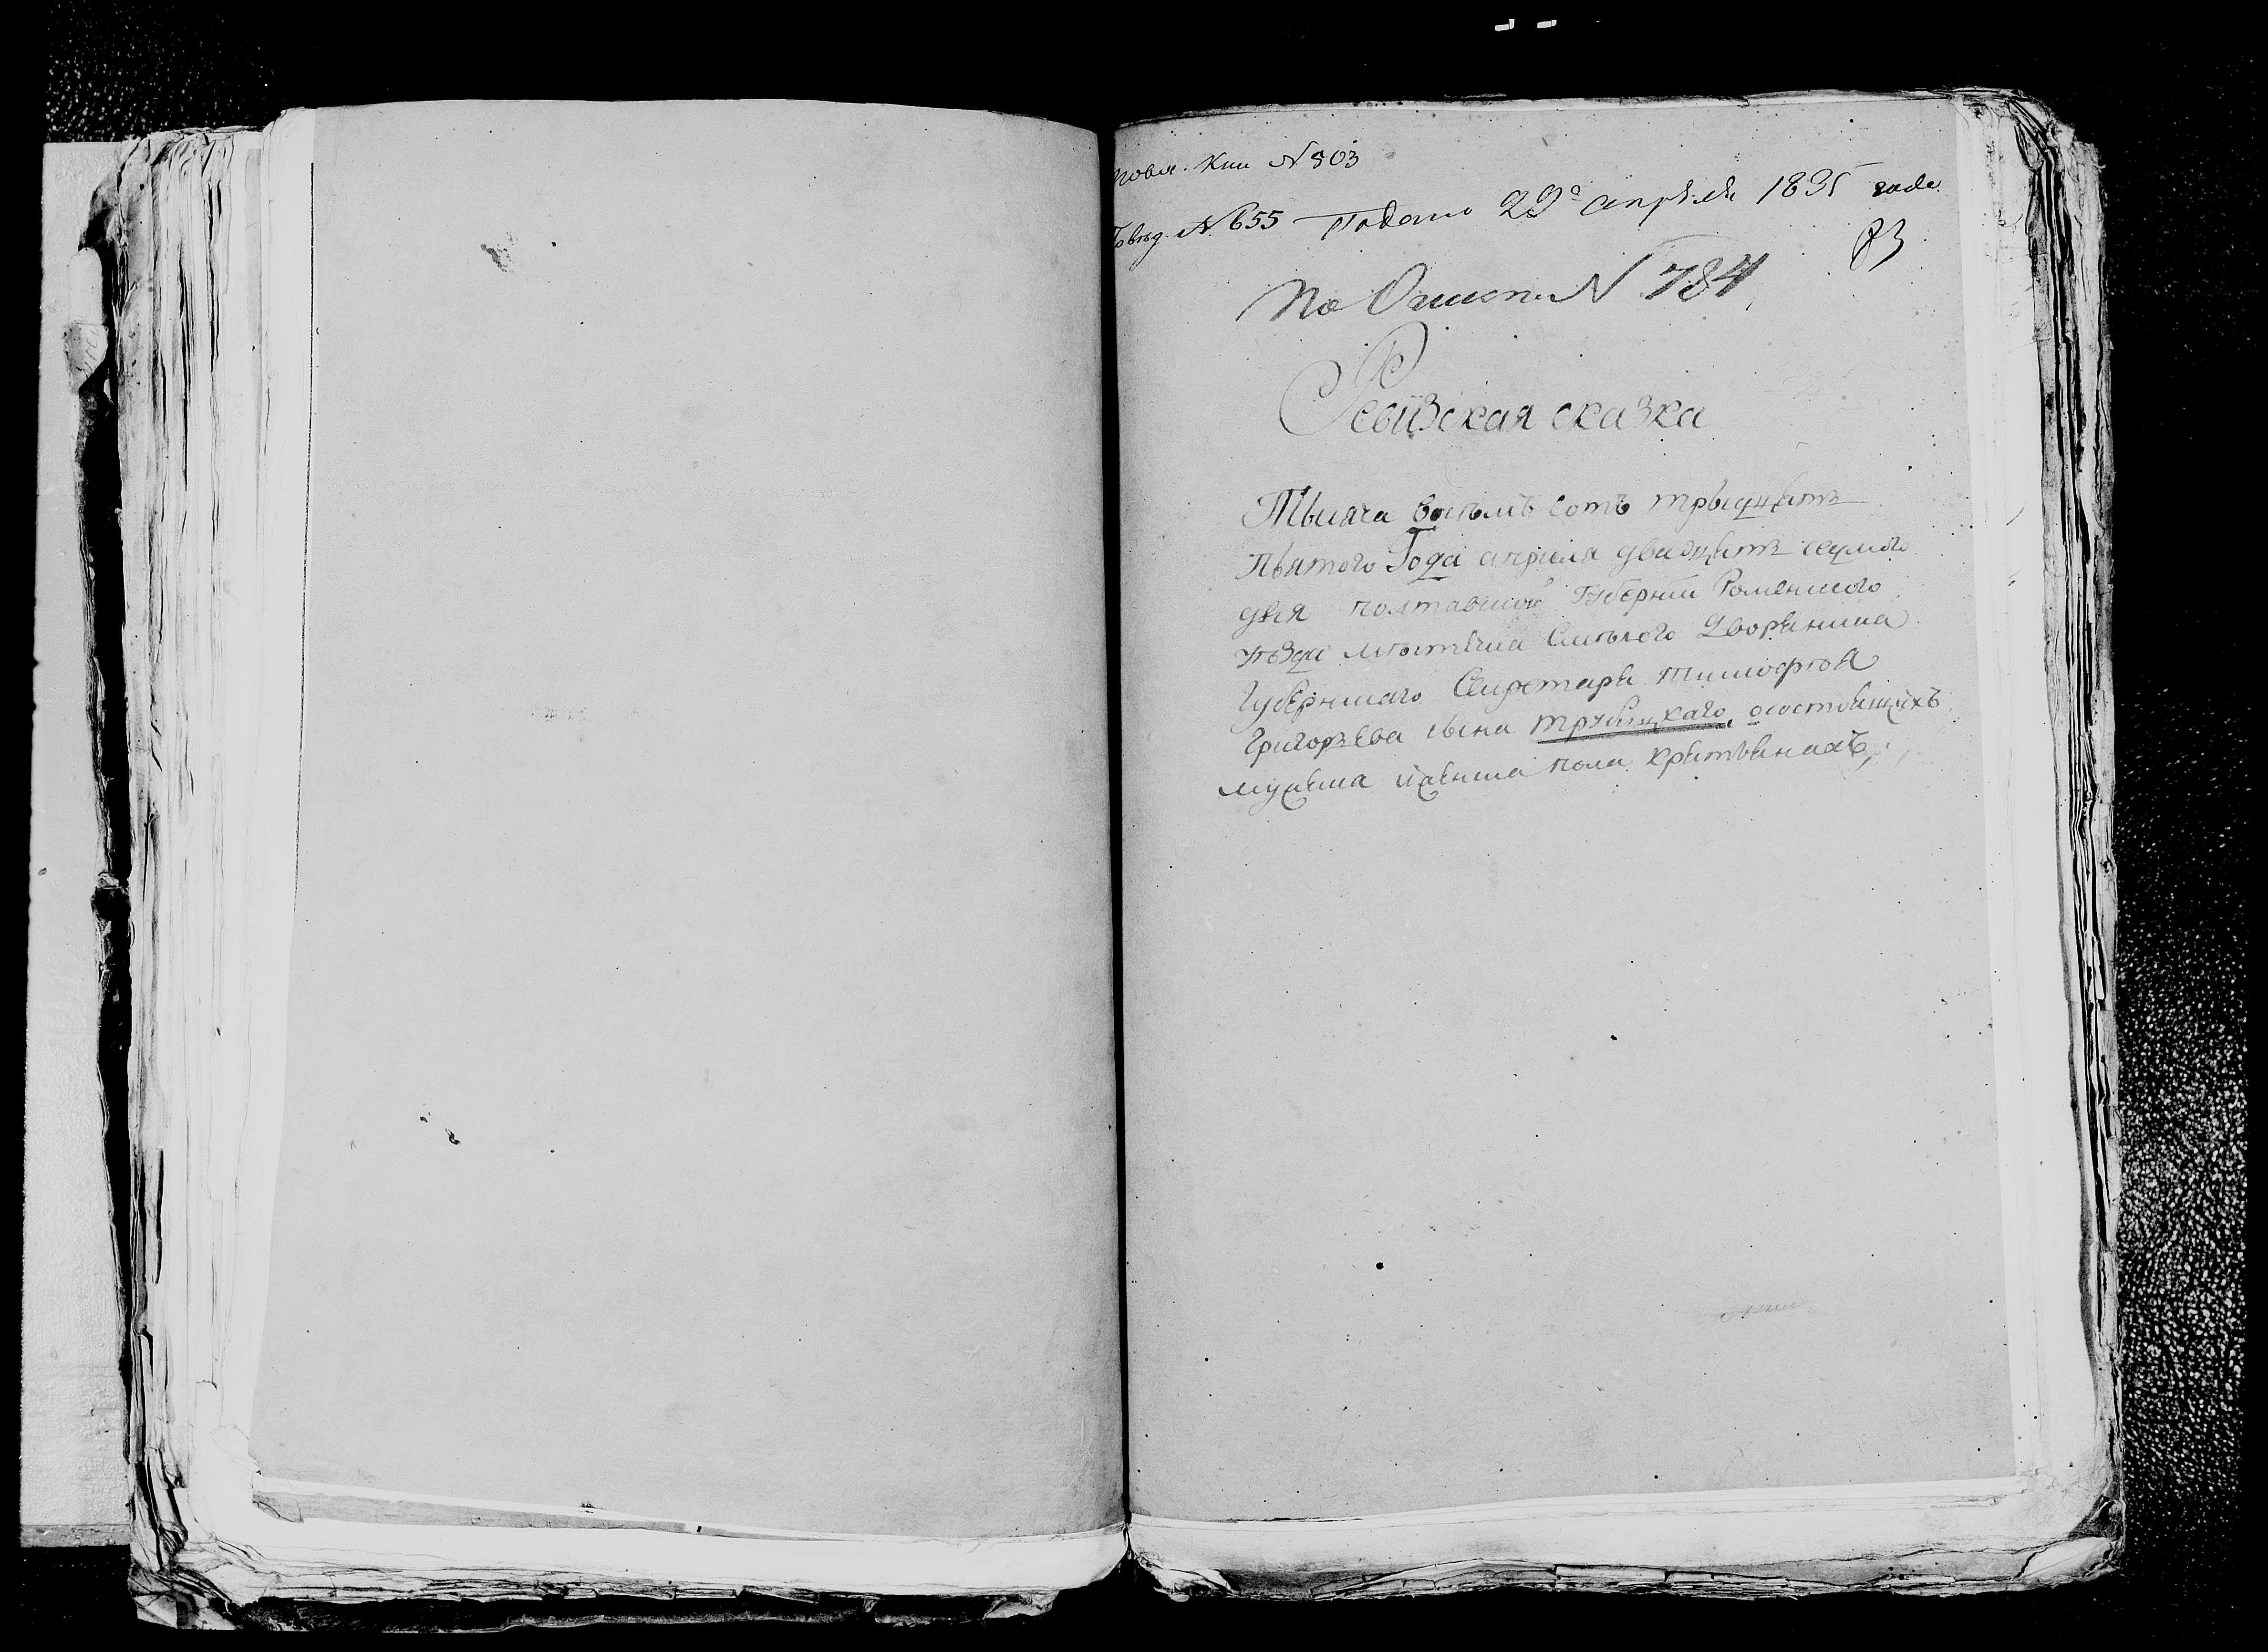 Кни N 503
N 655 Подано 29го апреля 1835 года
83
По Опист. N 784
Ревизская сказка
Тысяча восъмъ сотъ трыдцять
пьятого Года апреля двадцять седмого
дня полтавской Губернїи Роменского
уъзда мъстечка Смълого Дворянина
Губернскаго Секретаря тимофея
григоръева сына трубицкаго, осостоящихъ
мужеска иженска пола крестьянахъ,